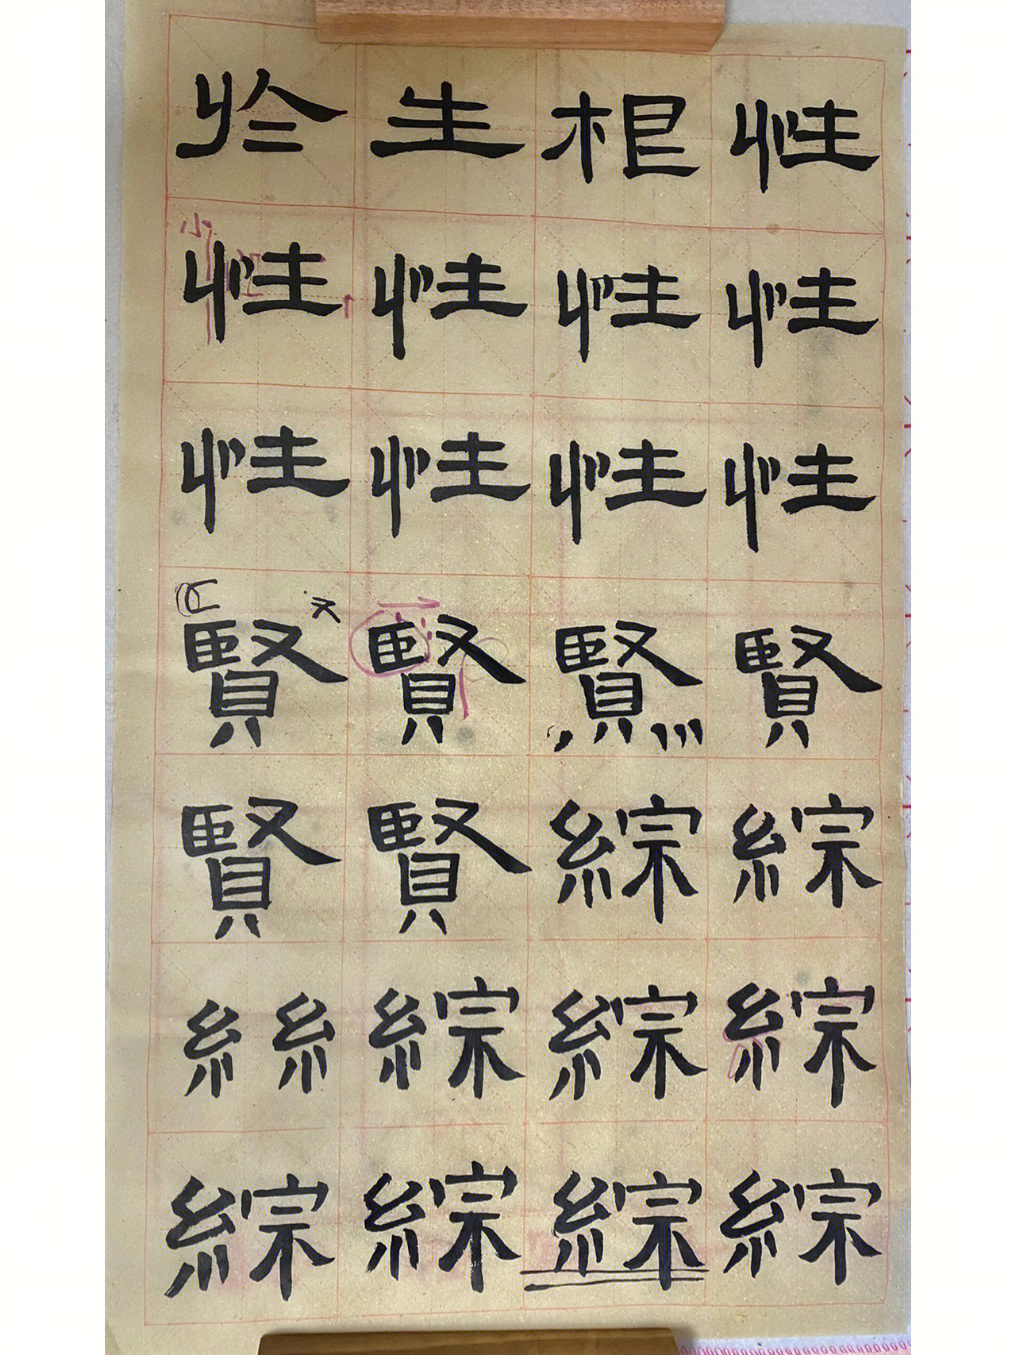 於生根性
性性性性
性性性性
賢賢賢賢
賢賢綜綜
糸糸綜綜綜
綜綜綜綜